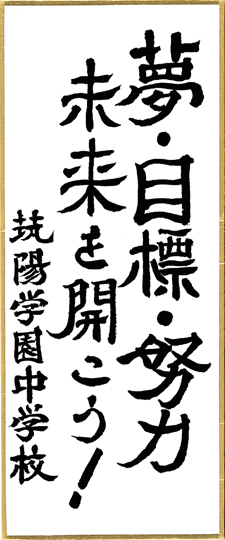 夢・目標・努力
未来を開こう!
筑陽学園中学校